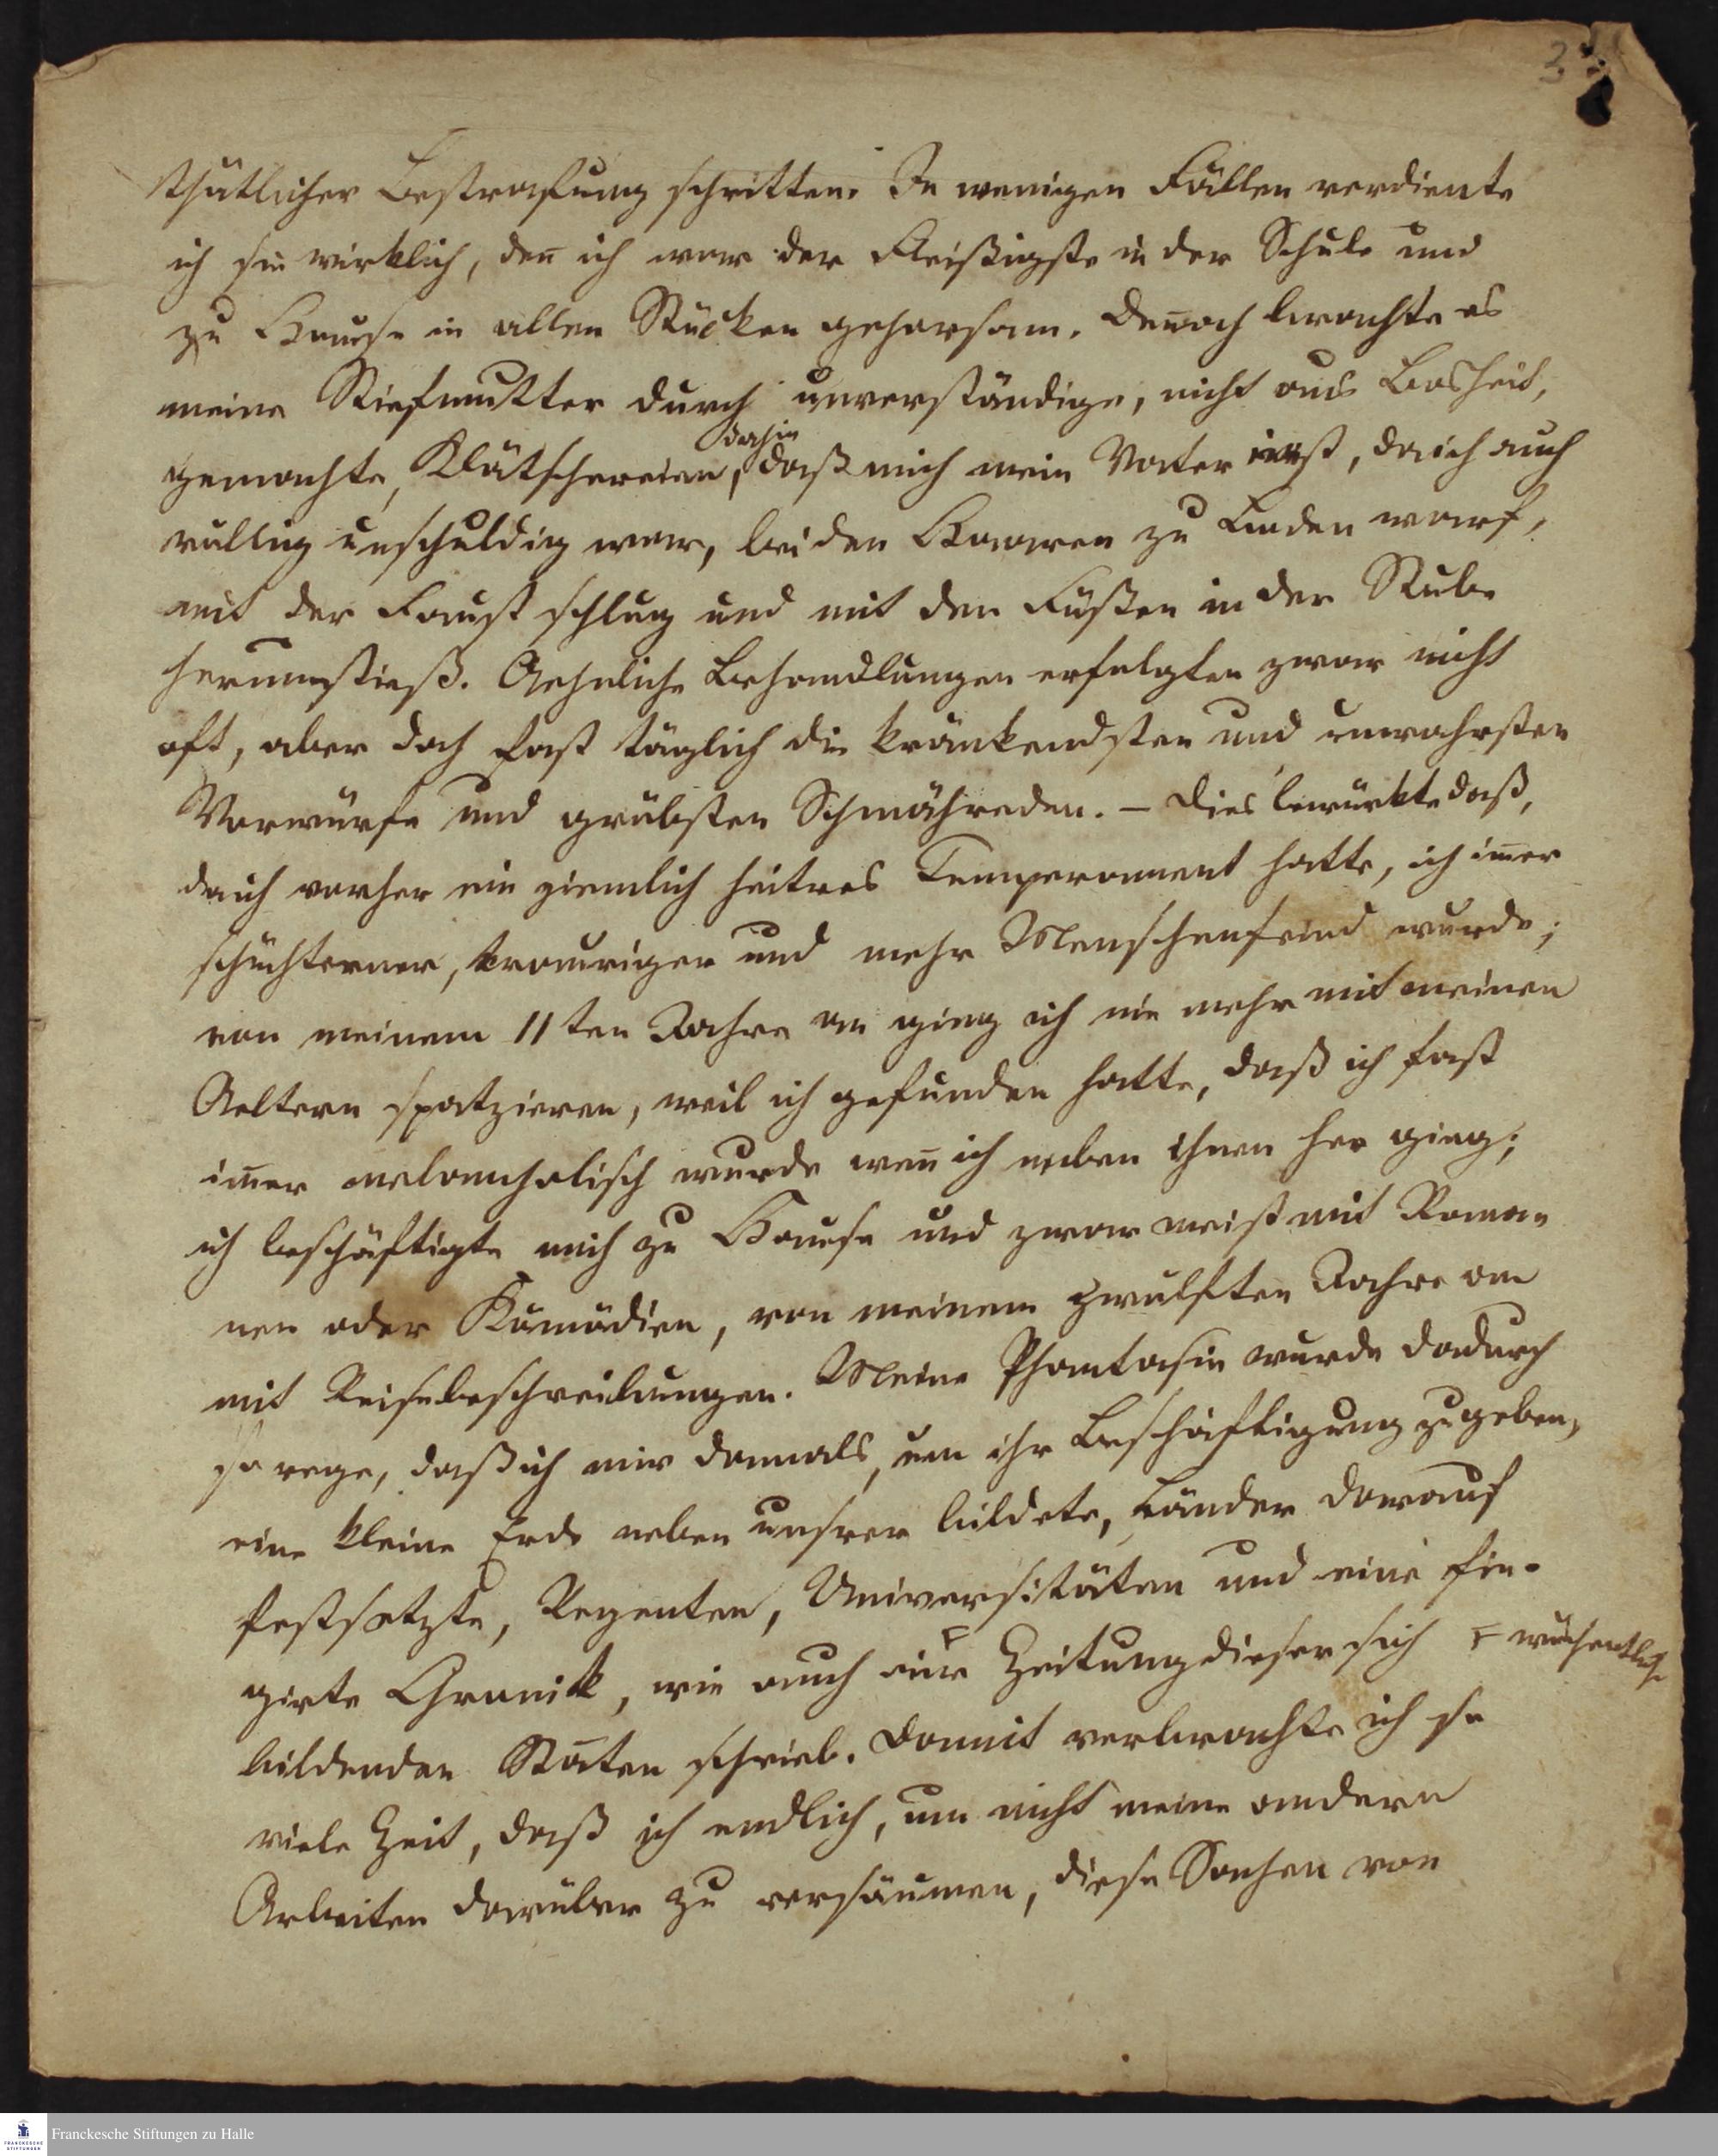 3
thätlicher Bestrafung schritten. In wenigen Fällen verdiente
ich sie wirklich, den̄ ich war der Fleißigste in der Schule und
zu Hause in allen Stücken gehorsam. Den̄och brachte es
meine Stiefmutter durch unverständige, nicht aus Bosheit,
dahin
gemachte, Klätschereien, daß mich mein Vater einst, da ich auch
völlig unschuldig war, bei den Haaren zu Boden warf,
mit der Faust schlug und mit den Füßen in der Stube
herumstieß. Aehnliche Behandlungen erfolgten zwar nicht
oft, aber doch fast täglich die kränkendsten und unwahrsten
Vorwürfe und gröbsten Schmähreden. – Dies bewürkte daß,
da ich vorher ein ziemlich heitres Temperament hatte, ich im̄er
schüchterner, trauriger und mehr Menschenfeind wurde;
von meinem 11ten Jahre an ging ich nie mehr mit meinen
Aeltern spatzieren, weil ich gefunden hatte, daß ich fast
im̄er melancholisch wurde wen̄ ich neben ihnen her ging;
ich beschäftigte mich zu Hause und zwar meist mit Roma-
nen oder Komödien, von meinem zwölften Jahre an
mit Reisebeschreibungen. Meine Phantasie wurde dadurch
so rege, daß ich mir damals, um ihr Beschäftigung zu geben,
eine kleine Erde neben unsrer bildete, Länder darauf
festsetzte, Regenten, Universitäten und eine fin-
girte Chronik, wie auch eine Zeitung dieser sich
wöchentliche
bildenden Staten schrieb. Damit verbrachte ich so
viele Zeit, daß ich endlich, um nicht meine andern
Arbeiten darüber zu versäumen, diese Sachen von
Franckesche Stiftungen zu Halle